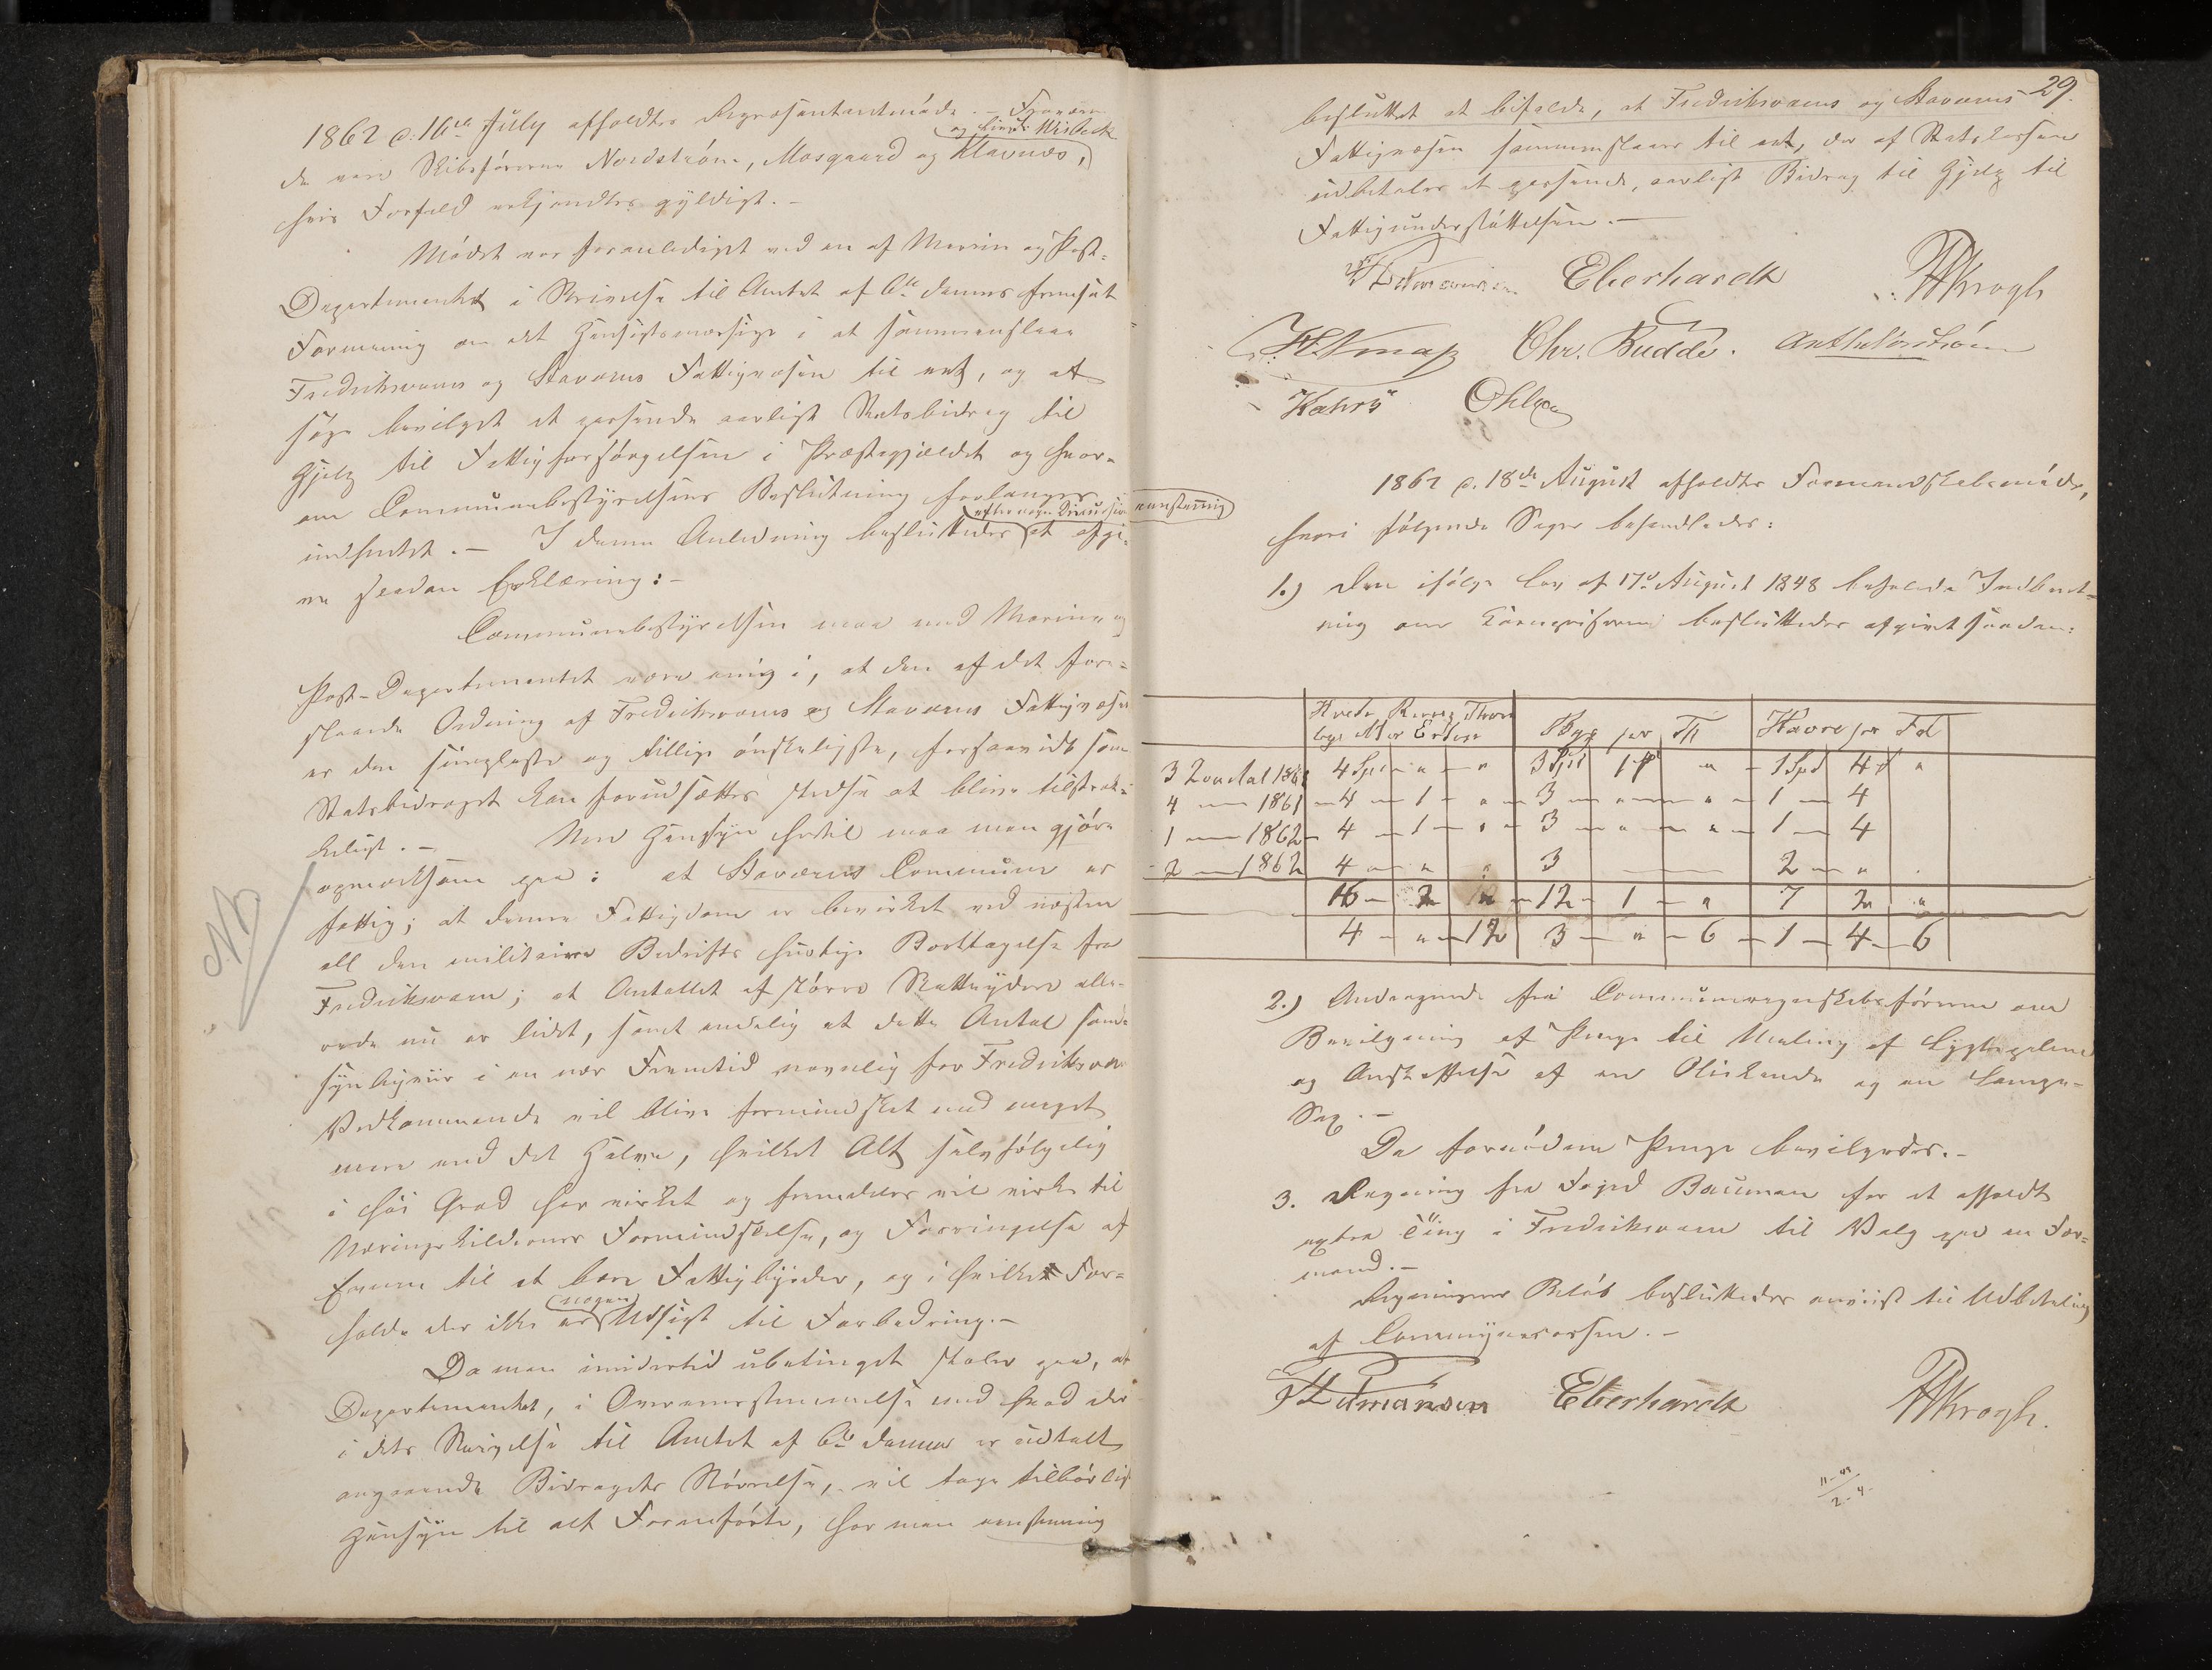 1862 d: 16de July afholdtes Repræsentantmøde. – Fraværen-
de vare Skibsførerne Nordstrøm, Mosgaard og Klavnæs,
og Lieut: Wisbech
hvis Forfald erkjendtes gyldigt. –
Mødet var foranlediget ved en af Marine og Post-
Departementet i Skrivelse til Amtet af 6te dennes fremsat
Formening om det Hensigtsmæssige i at sammenslaae
Fredriksværns og Staværns Fattigvæsen til eet, og at
søge bevilget et passende aarligt Statsbidrag til
Hjelp til Fattigforsørgelsen i Præstegjældet og hvor-
om Communebestyrelsens Beslutning forlanges
indhentet. – I denne Anledning besluttedes at afgi-
efter nogen Discussion eenstemmig
ve saadan Erklæring: –
Communebestyrelsen maa med Marine og
Post-Departementet være enig i, at den af det fore-
slaaede Ordning af Fredriksværns og Staværns Fattigvæsen
er den simpleste og tillige ønskeligste, forsaavidt som
Statsbidraget kan forudsættes stedse at blive tilstræk-
keligt. – Med Hensyn hertil maa man gjøre
opmærksom paa: at Staværns Commune er
fattig; at denne Fattigdom er bevirket ved næsten
all den militaire Bedrifts hurtige Borttagelse fra
Fredriksværn; at Antallet af større Skatteydere alle-
rede nu er lidet, samt endelig at dette Antal sand-
synligviis i en nær Fremtid navnlig for Fredriksværns
Vedkommende vil blive formindsket med meget
mere end det Halve, hvilket Alt selvfølgelig
i høi Grad har virket og fremdeles vil virke til
Næringskildernes Formindskelse, og Forringelse af
Evnen til at bære Fattigbyrder, og i hvilket For-
hold der ikke er nogen Udsigt til Forbedring. –
Da man imidlertid ubetinget stoler paa, at
Departementet, i Overensstemmelse med hvad der
i dets Skrivelse til Amtet af 6te dennes er udtalt
angaaende Bidragets Størrelse, vil tage tilbørligt
Hensyn til alt Foranførte, har man eenstemmig
NB
29.
besluttet at bifalde, at Fredriksværns og Staværns
Fattigvæsen sammenslaaes til eet, der af Statskassen
udbetales et passende, aarligt Bidrag til Hjelp til
Fattigunderstøttelsen. –
Eberhardt Krogh
Chr. Budde.
Kahrs Ohlsen
1862 d. 18de August afholdtes Formandskabsmøde,
hvori følgende Sager behandledes:
1.) Den ifølge Lov af 17de August 1848 befalede Indberet-
ning om Kornpriserne besluttedes afgivet saadan:
Hvede Byg per Td Havre per Td
3 Qvartal 1861 4 Spd " " 3 Spd 1 " 1 Spd 4 "
4 — 1861 – 4 – 1 – " – 3 – " – " – 1 – 4
1 — 1862 – 4 – 1 – " – 3 – " – " – 1 – 4
2 — 1862 4 – " " 3 — 2 – " .
16 – 2 " – 12 – 1 – " 7 2 "
4 – " – 12 3 – " – 6 – 1 – 4 – 6
2.) Andragende fra Communeregnskabsføreren om
Bevilgning af Penge til Maling af Lygtepælene
og Anskaffelse af en Oliekande og en Lampe-
Sax. –
De fornødne Penge bevilgedes. –
3. Regning fra Foged Bauman for et afholdt
extra Ting i Fredriksværn til Valg paa en For-
mand. –
Regningens Beløb besluttedes anviist til Udbetaling
af Communecassen. –
Eberhardt Krogh.